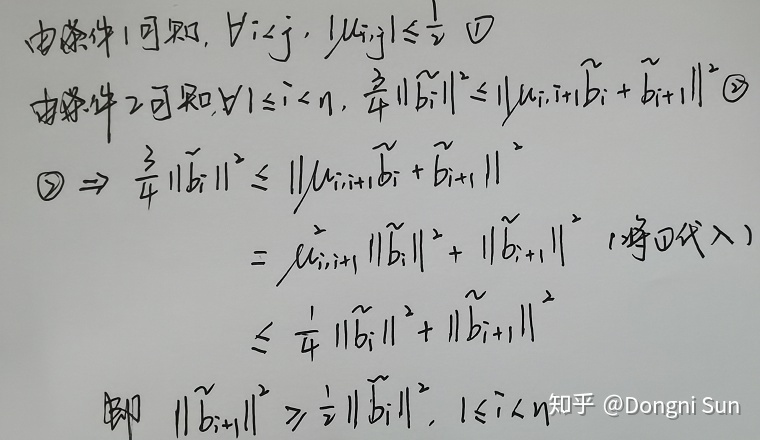 由条件1可知, ∀i<j, |μi,j| ≤ 1/2 ①
由条件2可知, ∀1≤i<n, 3/4 ||b̃i||² ≤ ||μi,i+1 b̃i + b̃i+1||² ②
② ⇒ 3/4 ||b̃i||² ≤ ||μi,i+1 b̃i + b̃i+1||²
= μ²i,i+1 ||b̃i||² + ||b̃i+1||² (将①代入)
≤ 1/4 ||b̃i||² + ||b̃i+1||²
即 ||b̃i+1||² ≥ 1/2 ||b̃i||², 1≤i<n
知乎 @Dongni Sun